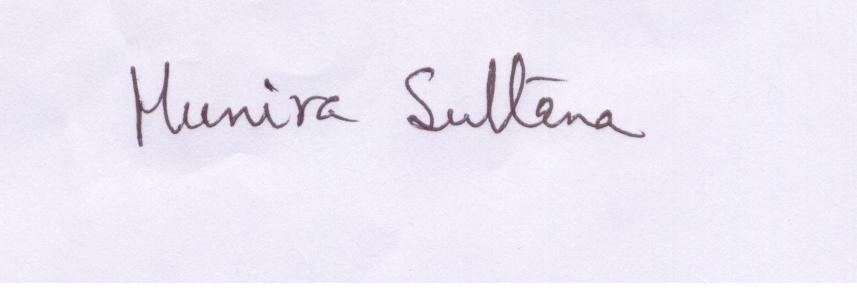 Munira Sultana